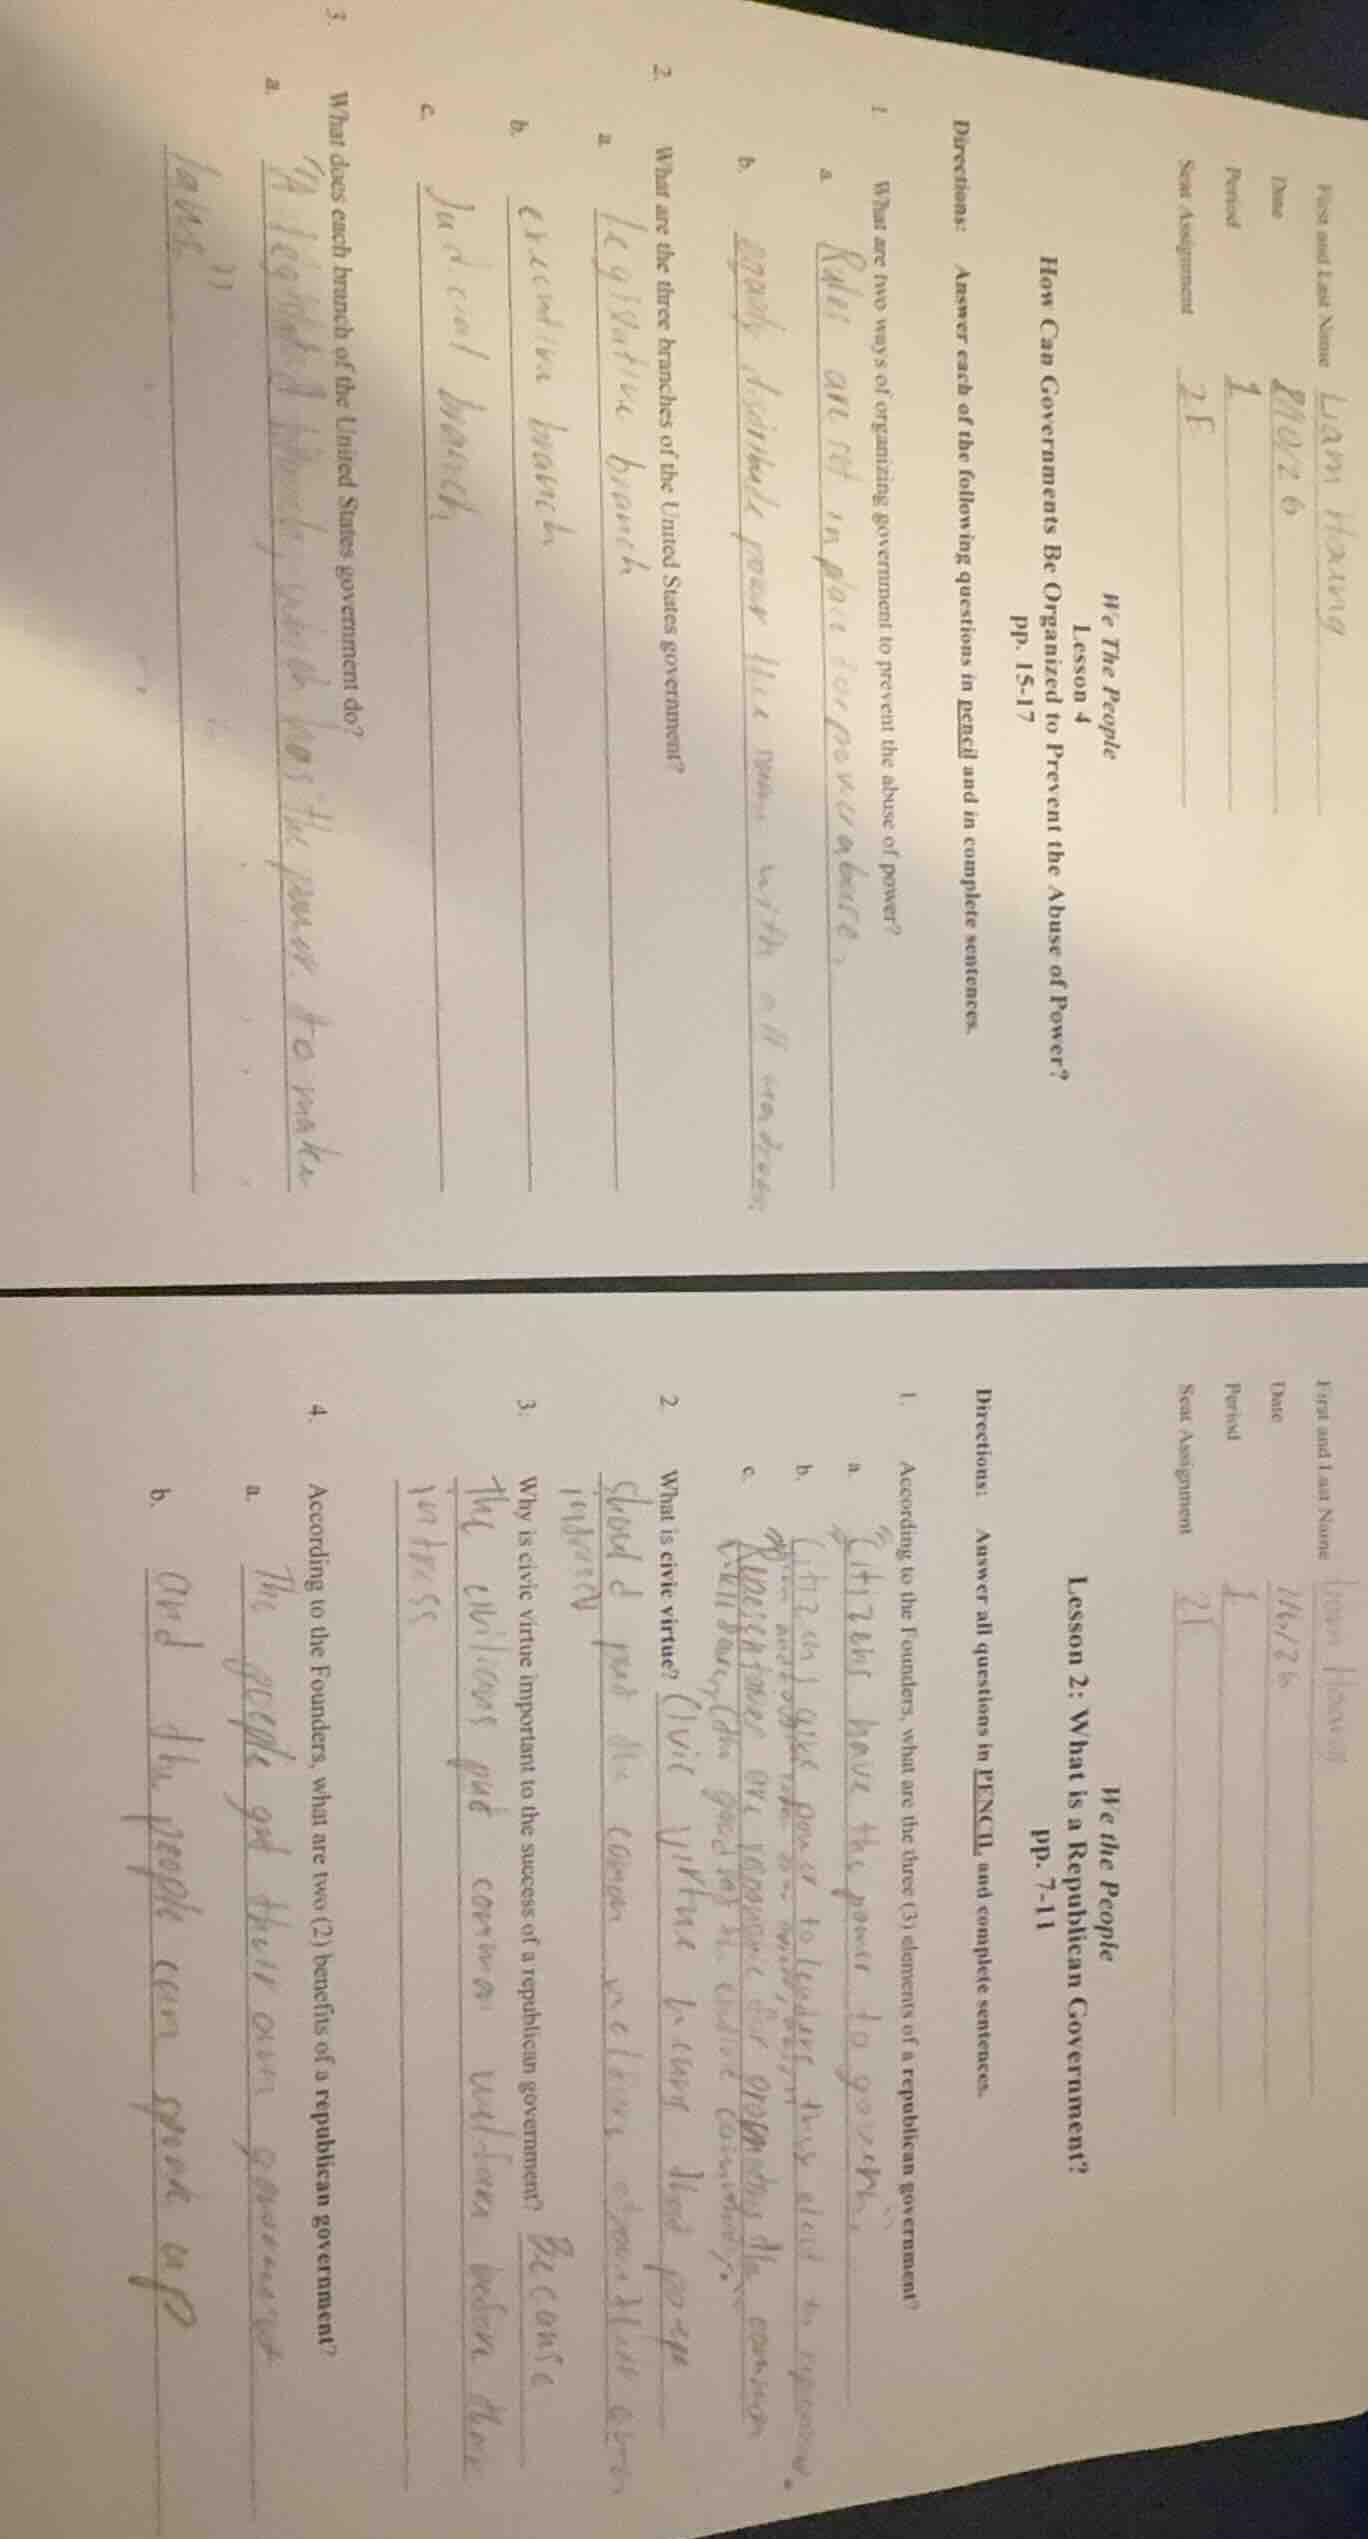 First and Last Name Liam Hoang
Date
Period 1
Seat Assignment 2F
We The People
Lesson 4
How Can Governments Be Organized to Prevent the Abuse of Power?
pp. 15-17
Directions: Answer each of the following questions in pencil and in complete sentences.
1. What are two ways of organizing government to prevent the abuse of power?
a. Rules are set in place for power abuse.
b. distribute power with all
2. What are the three branches of the United States government?
a. legislative branch
b. executive branch
c. Judicial branch
3. What does each branch of the United States government do?
a. "A branch, which has the power to make
laws."
First and Last Name Liam Hoang
Date 1/16/26
Period 1
Seat Assignment 2F
We the People
Lesson 2: What is a Republican Government?
pp. 7-11
Directions: Answer all questions in PENCIL and complete sentences.
1. According to the Founders, what are the three (3) elements of a republican government?
a. "Citizens have the power to govern."
b. Citizens give power to leaders they elect to
c. are for the common
the good of the entire
2. What is civic virtue? Civic virtue means that
should put the
3. Why is civic virtue important to the success of a republican government? Because
the civilians put common before there
intress
4. According to the Founders, what are two (2) benefits of a republican government?
a. The people get their own
b. and the people can speak up